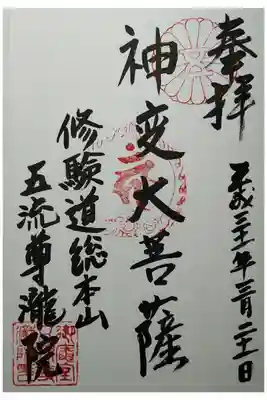 奉拝
平成三十一年三月二十一日
神変大菩薩
修験道総本山
五流尊瀧院